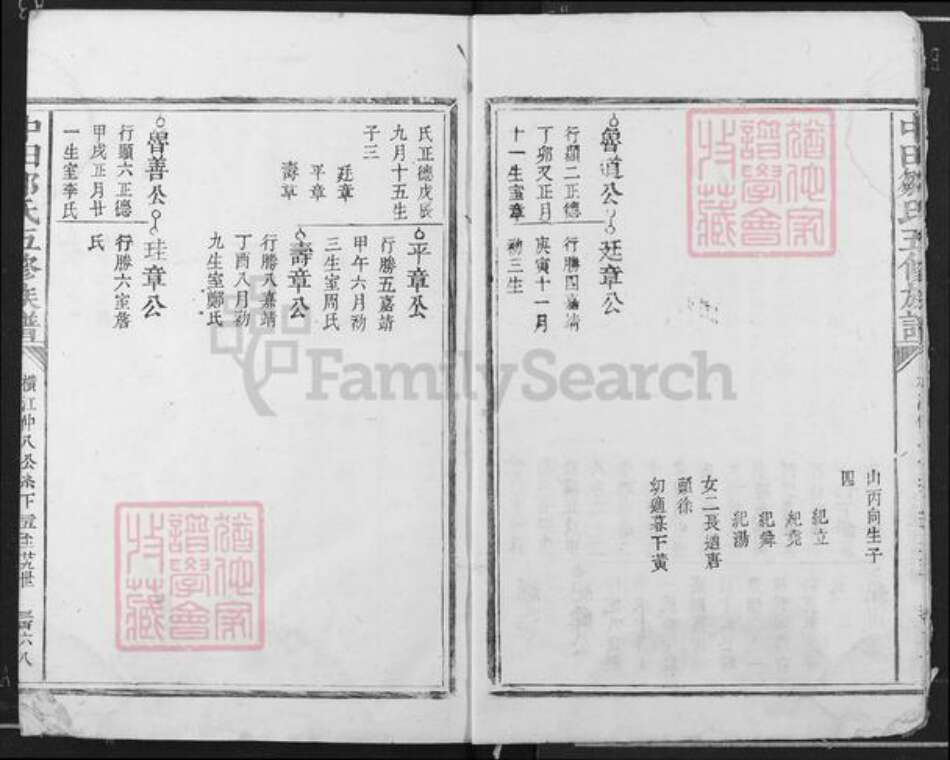 山丙向生子
四
紀立
紀堯
紀舜
紀湯
女二長適唐
顏徐
幼適暮下黃
魯道公
行顯二正德
丁卯又正月
十一生室章
廷章公
行勝四嘉靖
庚寅十一月
初三生
氏正德戊辰
九月十五生
子三
廷章
平章
壽章
平章公
行勝五嘉靖
甲午六月初
三生室周氏
壽章公
行勝八嘉靖
丁酉八月初
九生室鄭氏
魯善公
行顯六正德
甲戌正月廿
一生室李氏
珪章公
行勝六室詹
氏
中田鄒氏五修族譜
FamilySearch
譜學會
收藏
譜學會
收藏